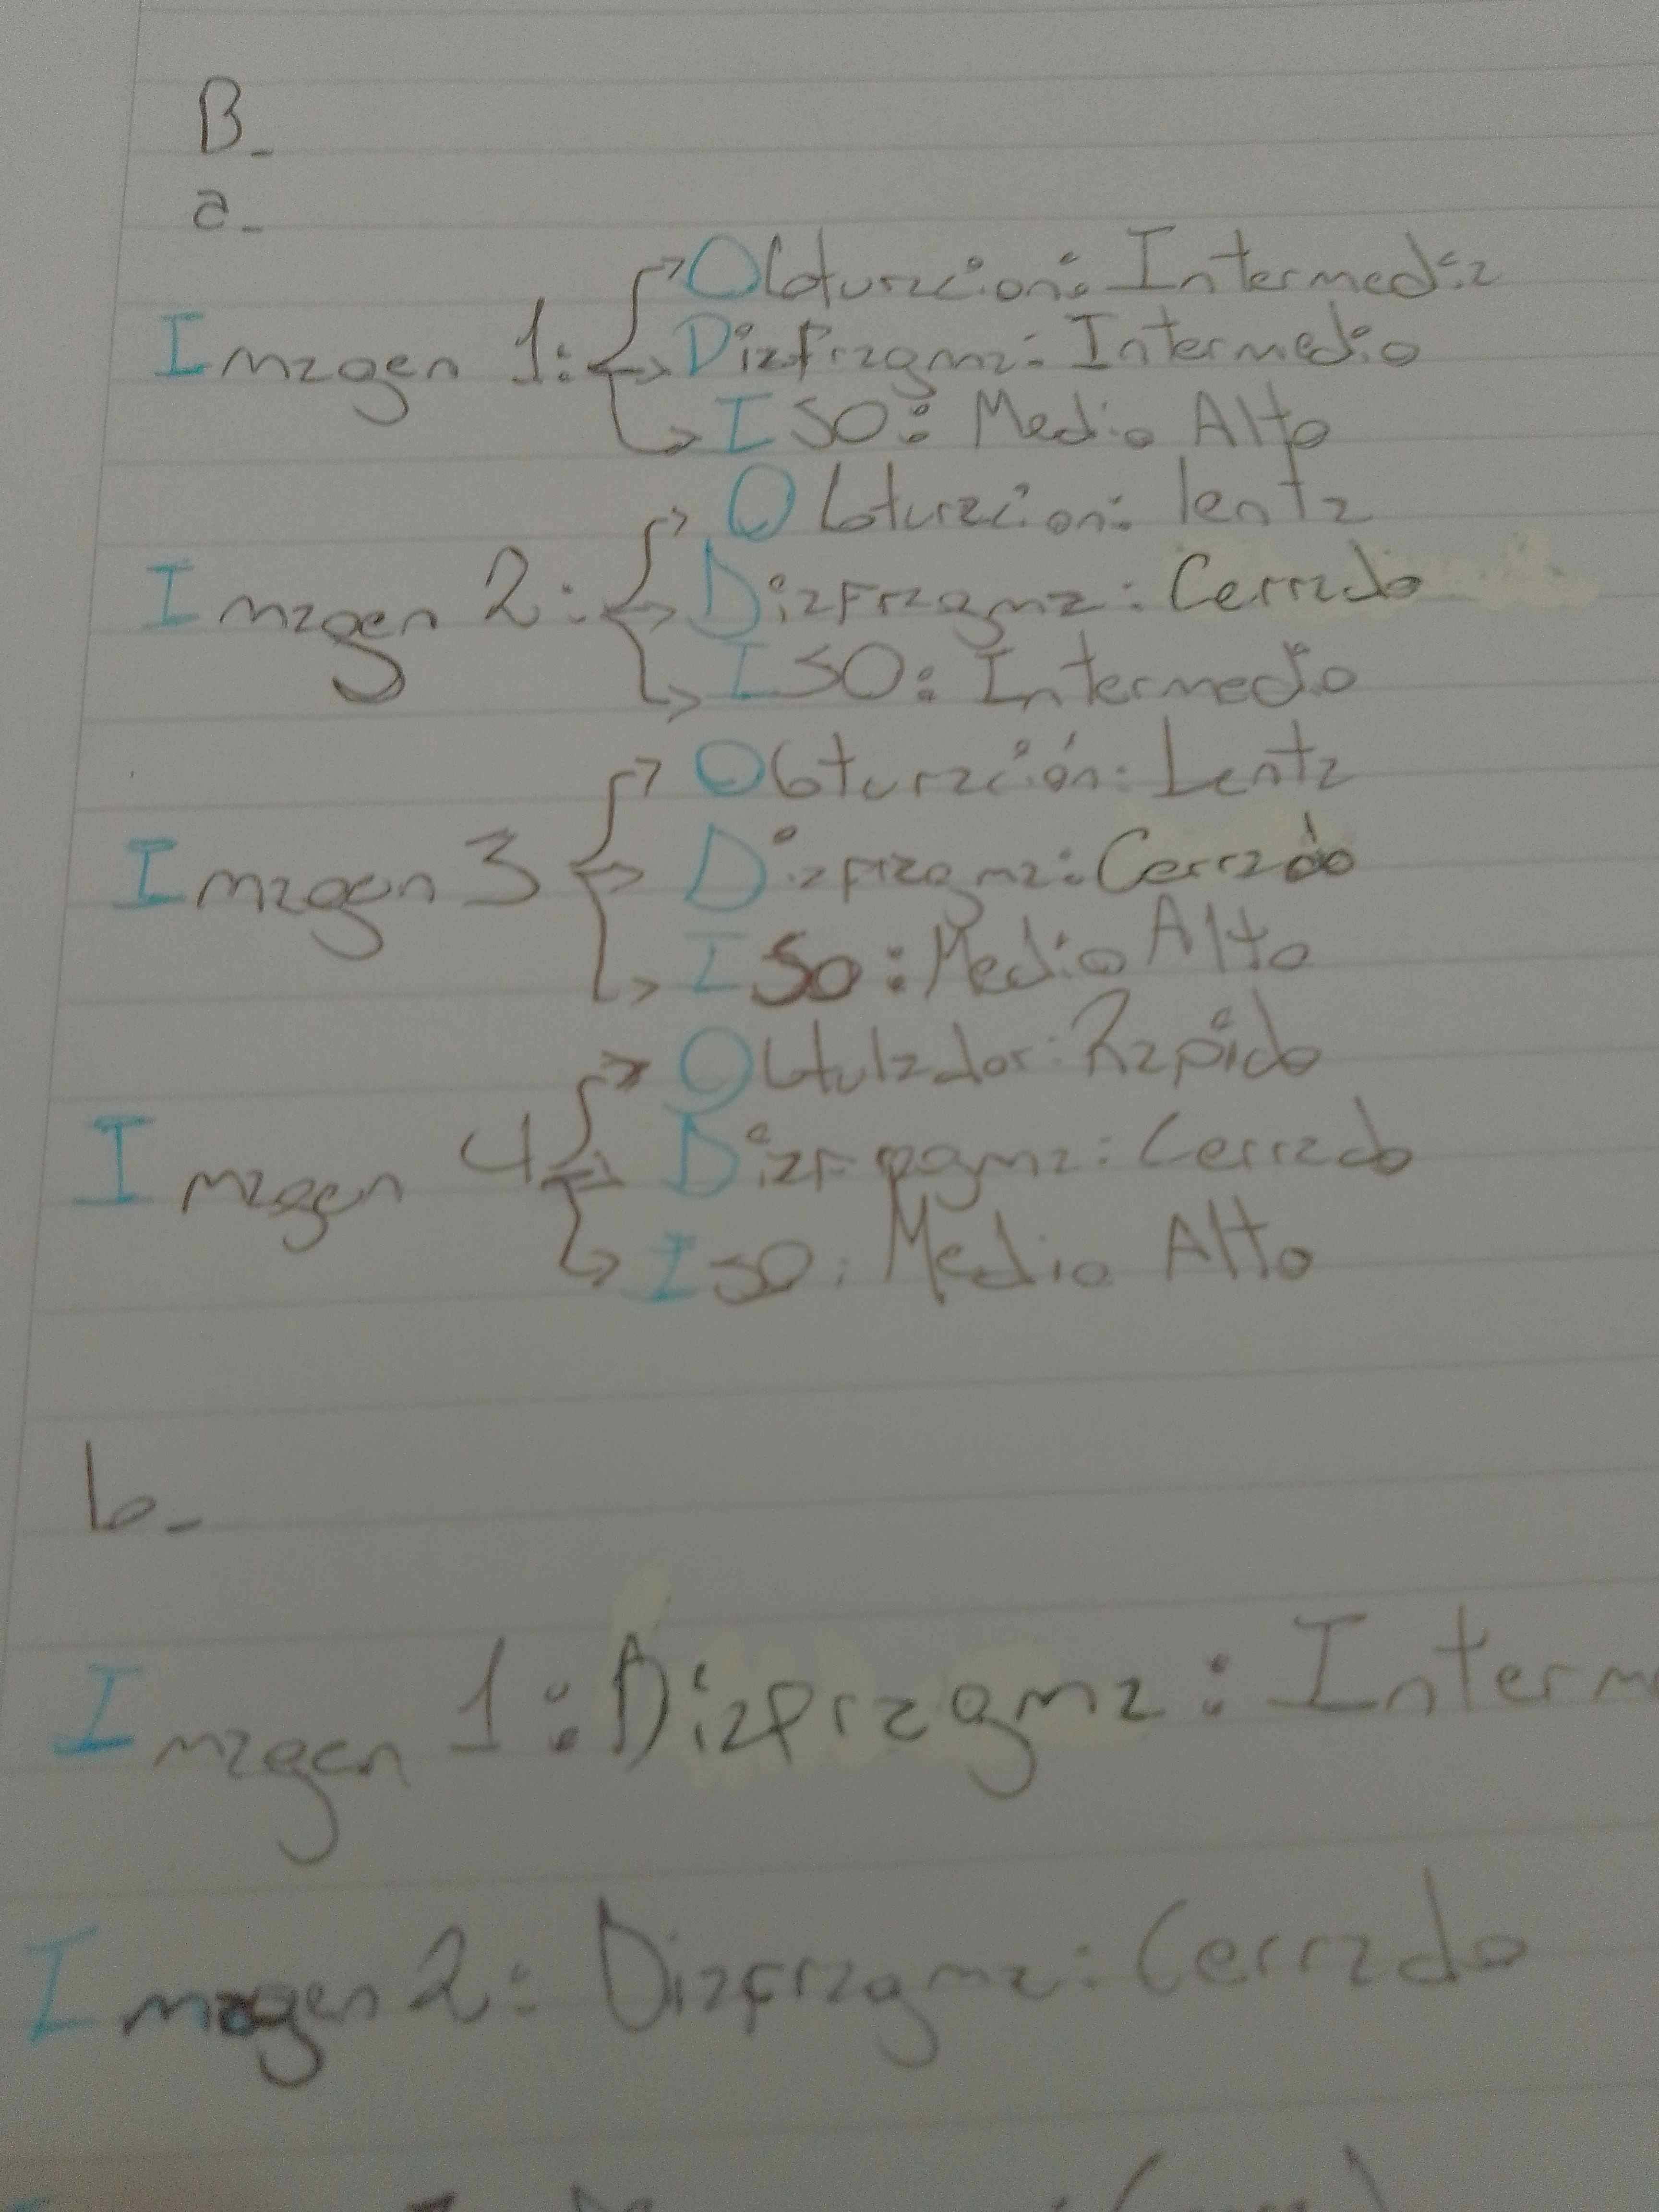 B_
a_
Obturacion: Intermedia
Imagen 1: Diafragma: Intermedio
ISO: Medio Alto
Obturacion: lenta
Imagen 2: Diafragma: Cerrado
ISO: Intermedio
Obturación: Lenta
Imagen 3 Diafragma: Cerrado
ISO: Medio Alto
Obtulador: Rapido
Imagen 4 Diafragma: Cerrado
ISO: Medio Alto
b_
Imagen 1: Diafragma: Interm
Imagen 2: Diafragma: Cerrado